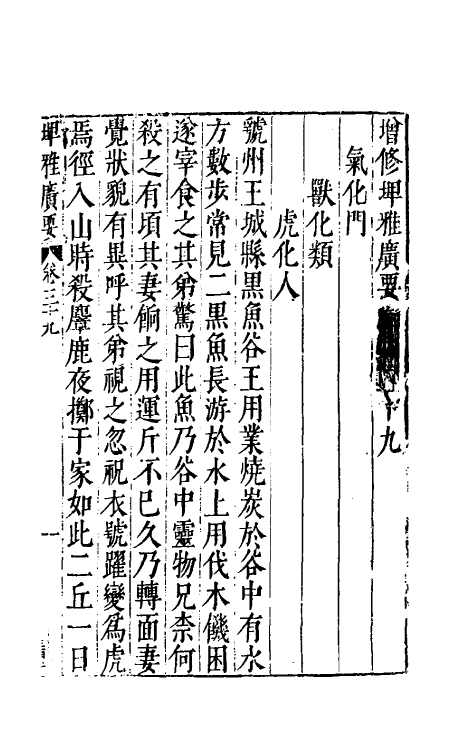 增修埤雅廣要卷　十九
氣化門
獸化類
虎化人
虢州王城縣黑魚谷王用業燒炭於谷中有水
方數步常見二黑魚長游於水上用伐木饑困
遂宰食之其弟驚曰此魚乃谷中靈物兄柰何
殺之有頃其妻餉之用運斤不已久乃轉面妻
覺狀貌有異呼其弟視之忽祝衣號躍變爲虎
焉徑入山時殺麏鹿夜擲于家如此二丘一日
埤雅廣要 卷三十九 一